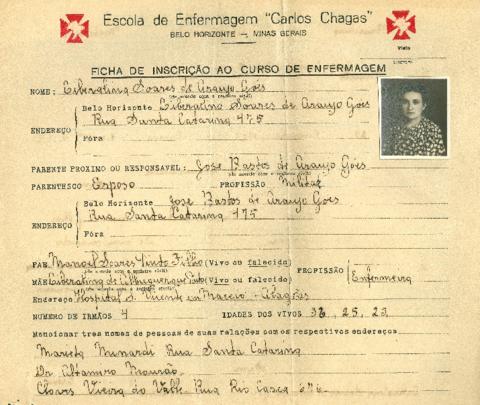 Escola de Enfermagem "Carlos Chagas"
BELO HORIZONTE — MINAS GERAIS
Visto
FICHA DE INSCRIÇÃO AO CURSO DE ENFERMAGEM
NOME: Liberalina Soares de Araujo Góes
Belo Horizonte Liberalina Soares de Araujo Góes
Rua Santa Catarina 475
ENDEREÇO
Fóra
PARENTE PROXIMO OU RESPONSAVEL: José Bastos de Araujo Góes
PARENTESCO Esposo PROFISSÃO Militar
Belo Horizonte José Bastos de Araujo Góes
Rua Santa Catarina 475
ENDEREÇO
Fóra
PAE Manoel Soares Pinto Filho (Vivo ou falecido)
PROFISSÃO
MÃE Liberalina de Albuquerque Pinto (Vivo ou falecido) Enfermeira
Endereço Hospital S. Vicente em Maceió - Alagôas
NUMERO DE IRMÃOS 4 IDADES DOS VIVOS 25, 23
Mencionar tres nomes de pessoas de suas relações com os respectivos endereços
Minardi Rua Santa Catarina
Dr Altamiro Mourão
Clovis Vieira do Valle Rua Rio Casca 676